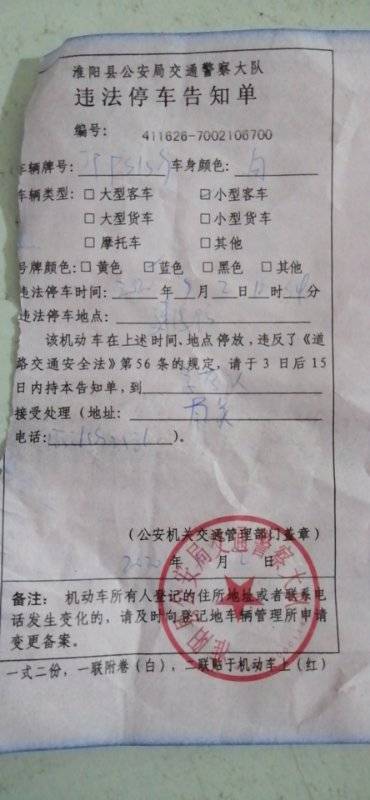 淮阳县公安局交通警察大队
违法停车告知单
编号: 411626-7002106700
车辆牌号: 车身颜色: 白
车辆类型: □大型客车 ☑小型客车
□大型货车 □小型货车
□摩托车 □其他
号牌颜色:□黄色 ☑蓝色 □黑色 □其他
违法停车时间: 2020年9月2日 时 分
违法停车地点:
该机动车在上述时间、地点停放,违反了《道
路交通安全法》第56条的规定,请于3日后15
日内持本告知单,到
接受处理(地址:
电话: )。
(公安机关交通管理部门盖章)
2020年 月 日
备注: 机动车所有人登记的住所地址或者联系电
话发生变化的,请及时向登记地车辆管理所申请
变更备案。
一式二份,一联附卷(白),二联贴于机动车上(红)
淮阳县公安局交通警察大队